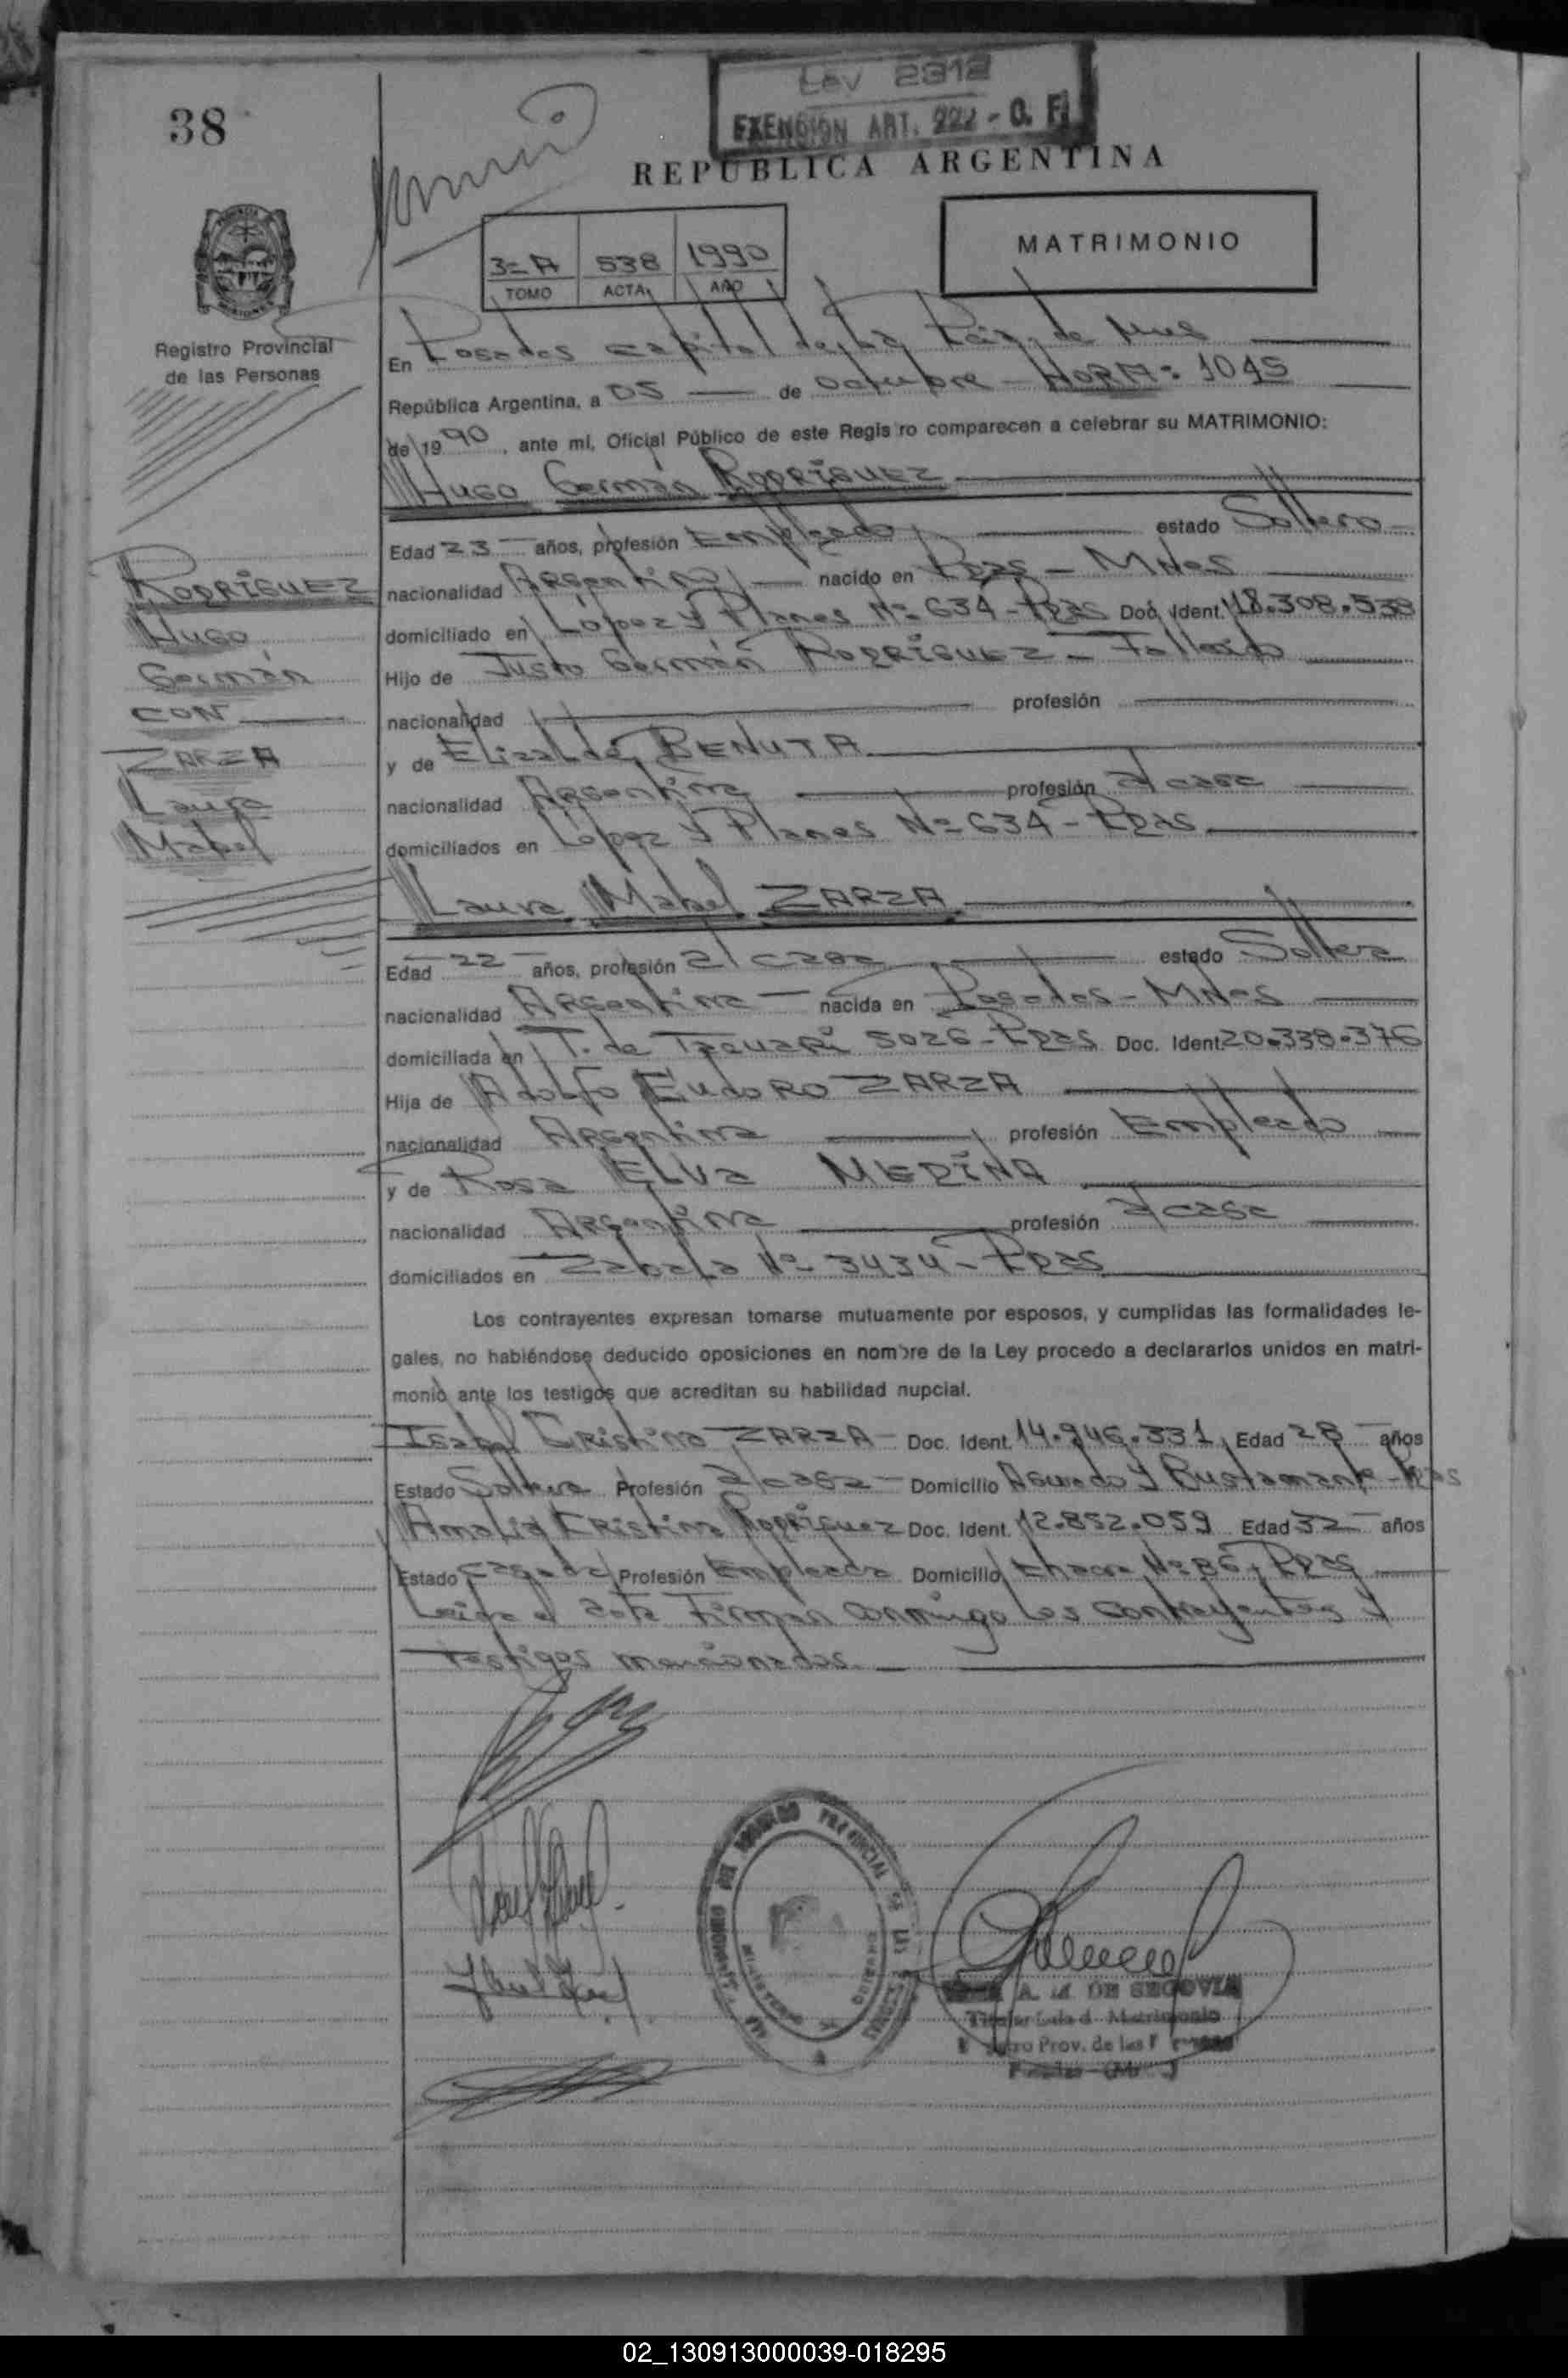 Ley 2312
EXENCION ART. 222 - O. F.
38
REPUBLICA ARGENTINA
MATRIMONIO
3= A 538 1990
TOMO ACTA AÑO
Registro Provincial
de las Personas
En Posadas capital de la de
República Argentina, a 05 de octubre - HORA: 1045
de 19 90, ante mi, Oficial Público de este Registro comparecen a celebrar su MATRIMONIO:
Hugo Germán RODRÍGUEZ
Edad 23 años, profesión Empleado estado Soltero
nacionalidad Argentino nacido en Pdas - Mnes
domiciliado en López y Planes Nº 634 - Pdas Doc. Ident. 18.308.538
Hijo de Justo Germán RODRÍGUEZ - Fallecido
nacionalidad profesión
y de Elizalde BENUTA
nacionalidad Argentina profesión a/ casa
domiciliados en López y Planes Nº 634 - Pdas
RODRÍGUEZ
Hugo
Germán
CON
ZARZA
Laura
Mabel
Laura Mabel ZARZA
Edad 22 años, profesión a/ casa estado Soltera
nacionalidad Argentina nacida en Posadas - Mnes
domiciliada en T. de Tacuarí 5026 - Pdas Doc. Ident. 20.338.376
Hija de Adolfo Eudoro ZARZA
nacionalidad Argentina profesión Empleado
y de Rosa ELVA MEDINA
nacionalidad Argentina profesión a/ casa
domiciliados en Zabala Nº 3434 - Pdas
Los contrayentes expresan tomarse mutuamente por esposos, y cumplidas las formalidades le-
gales, no habiéndose deducido oposiciones en nombre de la Ley procedo a declararlos unidos en matri-
monio ante los testigos que acreditan su habilidad nupcial.
Isabel Cristina ZARZA - Doc. Ident. 14.946.331 Edad 28 años
Estado Soltera Profesión a/ casa - Domicilio Aguado y Bustamante - Pdas
Amalia Cristina Rodríguez Doc. Ident. 12.852.059 Edad 32 años
Estado casada Profesión Empleada Domicilio Chacra Nº 86, Pdas
Leída el acta Firman conmigo los contrayentes y
testigos mencionados.
A. M. DE SEGOVIA
Matrimonio
Prov. de las
02_130913000039-018295